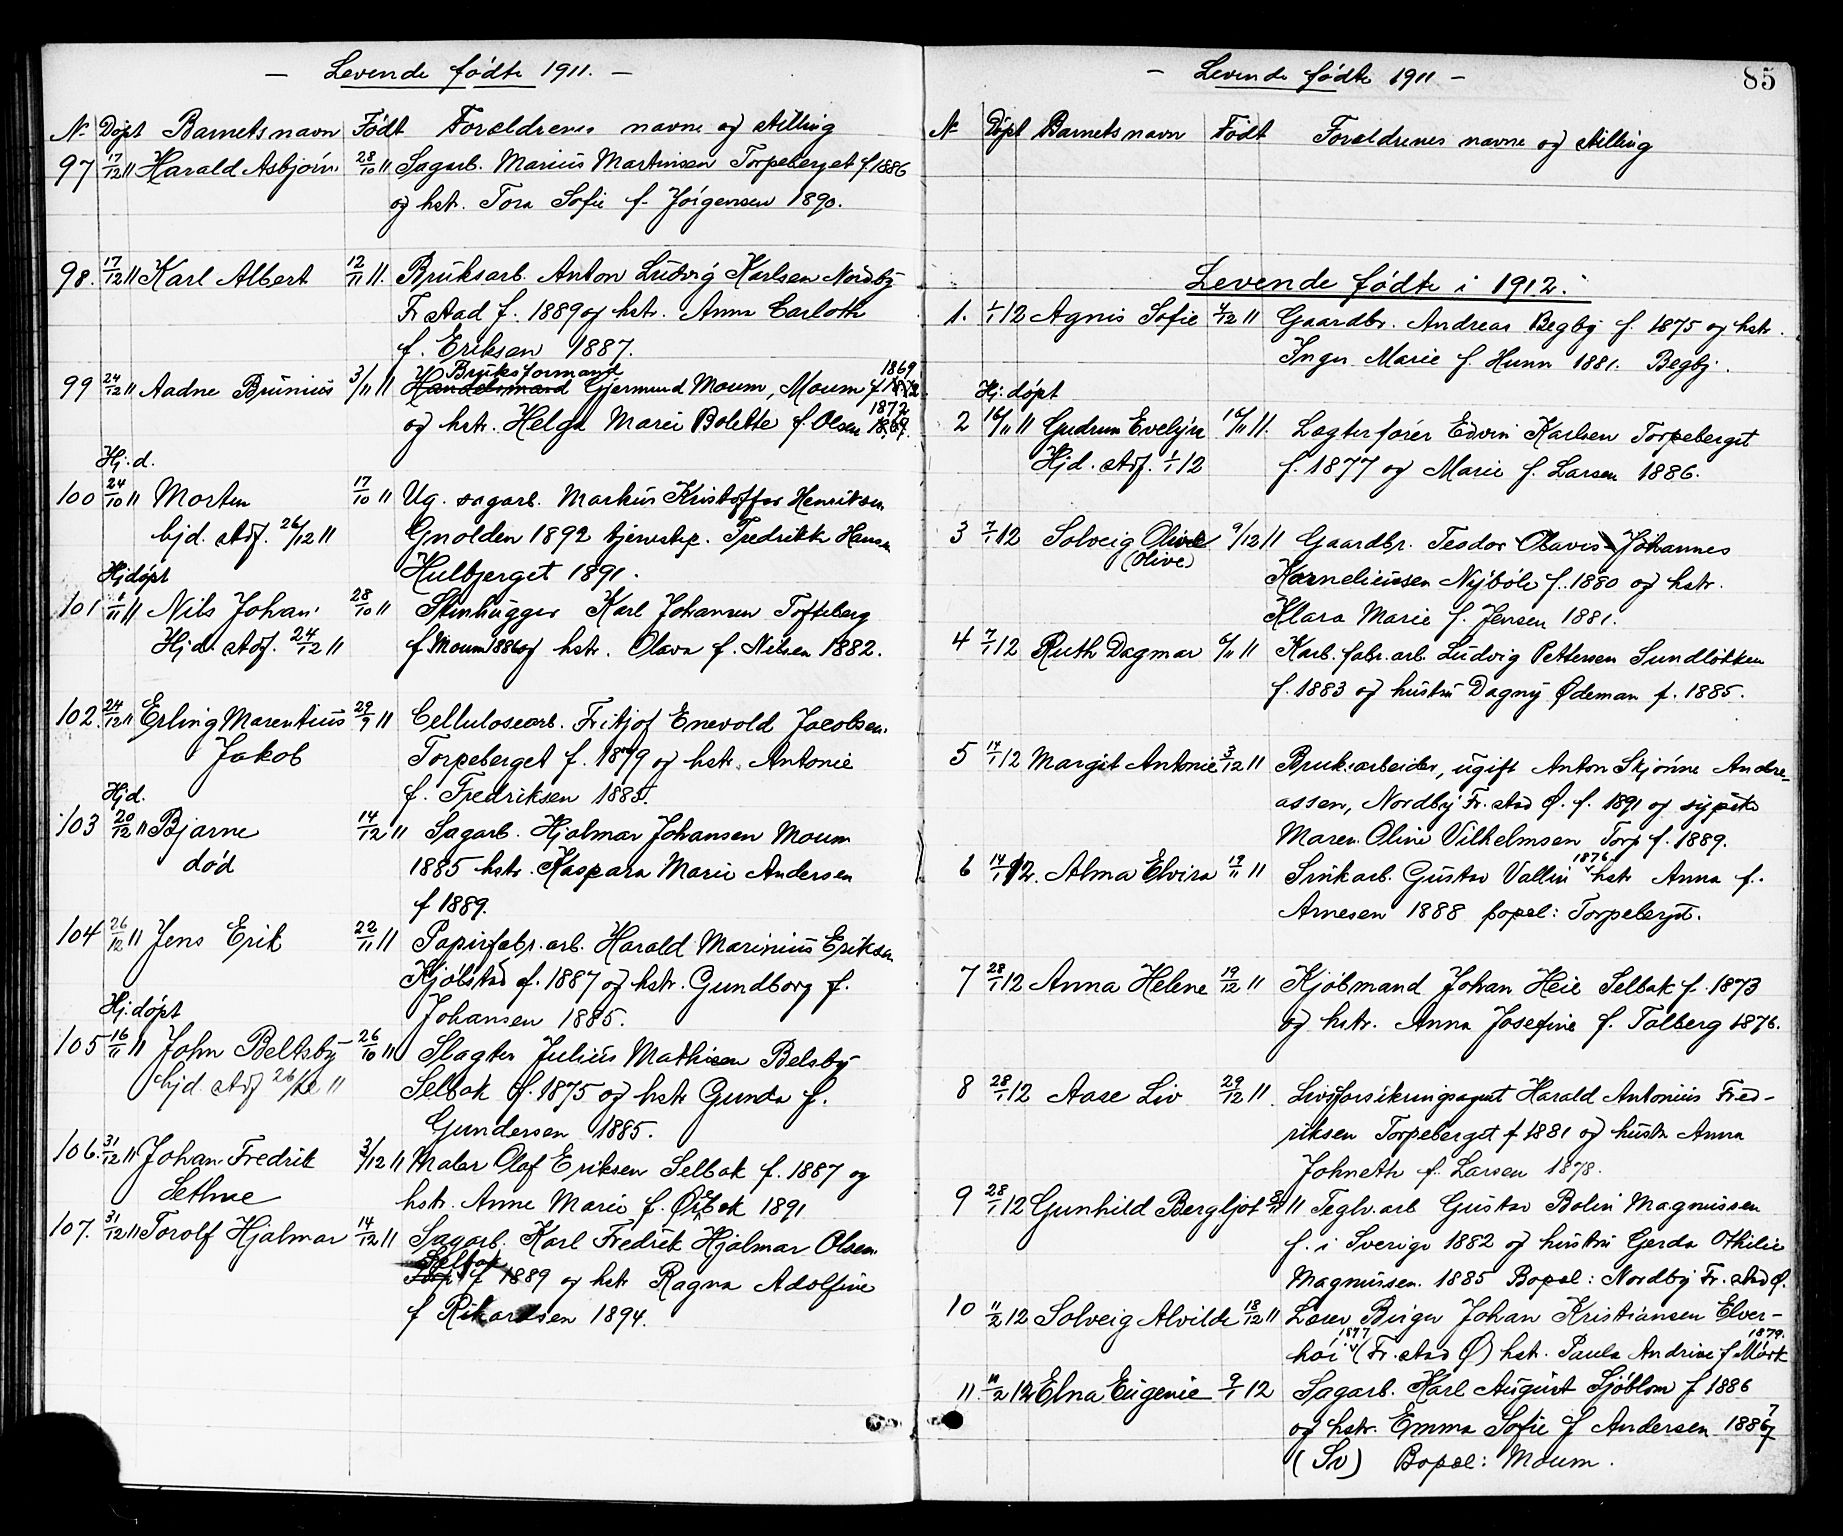 - Levende fødte 1911. -
Nr Døpt Barnets navn Født Forældrenes navne og stilling
97 17/12 11 Harald Asbjørn 28/10 11 Sagarb. Marius Martinsen Torpeberget f 1886
og hstr. Tora Sofie f. Jørgensen 1890.
98. 17/12 11 Karl Albert 12/11 11. Bruksarb. Anton Ludvig Karlsen Nordby
Fr.stad f. 1889 og hstr. Anna Carlotte
f. Eriksen 1887.
Bruksformand 1869
99 24/12 11 Aadne Brunius 3/11 11 Handelsmand Gjermund Moum, Moum f 1872
1872
og hstr. Helga Marie Bolette f. Olsen 1869.
Hj. d.
100 24/10 11 Morten 17/10 11 Ug. sagarb. Markus Kristoffer Henriksen
hjd. stdf. 26/12 11 Gnolden 1892 tjenestep. Fredrikke Hansen
Hulbjerget 1891.
Hj døpt
101 11 Nils Johan 28/10 11 Stenhugger Karl Johansen Tofteberg
Hjd. stdf. 24/12 11 f Moum 1886 og hstr. Olava f. Nilsen 1882.
102. 24/12 11 Erling Marentius 29/9 11 Cellulosearb. Fritjof Enevold Jacobsen
Jakob Torpeberget f. 1879 og hstr. Antonie
f. Fredriksen 1885.
Hjd.
103 20/12 11 Bjarne 14/12 11 Sagarb. Hjalmar Johansen Moum
død 1885 hstr. Kaspara Marie Andersen
f 1889.
104 26/12 11 Jens Erik 22/11 11 Papirfabr. arb. Harald Marinius Eriksen
Kjølstad f. 1887 og hstr. Gundborg f.
Johansen 1885.
Hj. døpt
105 16/11 11 John Beltsby 26/10 11 Slagter Julius Mathisen Belsby
hjd. stdf 26/12 11 Selbak f. 1875 og hstr Gunda f.
Gundersen 1885.
106. 31/12 11 Johan Fredrik 3/12 11 Maler Olaf Eriksen Selbak f. 1887 og
Sethne hstr. Anne Marie f. Ørebek 1891
107. 31/12 11 Torolf Hjalmar 14/12 11 Sagarb. Karl Fredrik Hjalmar Olsen
Selbak
Torp f 1889 og hstr Ragna Adolfine
f Rikardsen 1894.
- Levende fødte 1911 - 85
Nr Døpt Barnets navn Født Forældrenes navne og stilling
Levende fødte i 1912.
1. 1/1 12 Agnes Sofie 4/12 11 Gaardbr. Andreas Begby f. 1875 og hstr.
Inger Marie f. Hunn 1881. Begby.
Hj. døpt
2 16/11 11 Gudrun Evelyn 16/11 11. Lagterfører Edvin Karlsen Torpeberget
Hjd. stdf. 1/1 12 f. 1877 og Marie f. Larsen 1886.
3 7/1 12 Solveig Olive 9/12 11 Gaardbr. Teodor Olavis Johannes
(Olive) Korneliussen Nybøle f. 1880 og hstr.
Klara Marie f. Jensen 1881.
4 7/1 12 Ruth Dagmar 6/11 11 Karb. fabr. arb. Ludvig Pettersen Sundløkken
f. 1883 og hustru Dagny Ødeman f. 1885.
5 14/1 12 Margit Antonie 3/12 11 Bruksarbeider, ugift Anton Skjønne Andre-
assen, Nordby Fr.stad Ø. f. 1891 og sypike
Maren Oline Vilhelmsen Torp f. 1889.
6 14/1 12. Alma Elvira 19/11 11 Sinkarb. Gustav Vallin 1876 hstr Anna f.
Arnesen 1888 bopæl: Torpeberget.
7 28/1 12 Anna Helene 19/12 11 Kjøbmand Johan Heie Selbak f. 1873
og hstr. Anna Josefine f. Talberg 1876.
8 28/1 12 Aase Liv 29/12 11 Livsforsikringsagent Harald Antonius Fred-
riksen Torpeberget f 1881 og hustr Anna
Johnette f. Larsen 1878.
9 28/1 12 Gunhild Bergljot 11 Teglv. arb Gustav Bolin Magnussen
f. i Sverige 1882 og hustru Gerda Othilie
Magnussen. 1885 Bopæl: Nordby Fr. stad Ø.
10 11/2 12 Solveig Alvilde 18/12 11 Lærer Birger Johan Kristiansen Elver-
1877 1879.
høi (Fr. stad Ø) hstr. Paula Andrine f Mørk
11. 11/2 12 Elna Eugenie 9/1 12 Sagarb. Karl August Sjöblom f 1886
og hstr. Emma Sofie f Andersen 1887
(Sv) Bopæl: Moum.